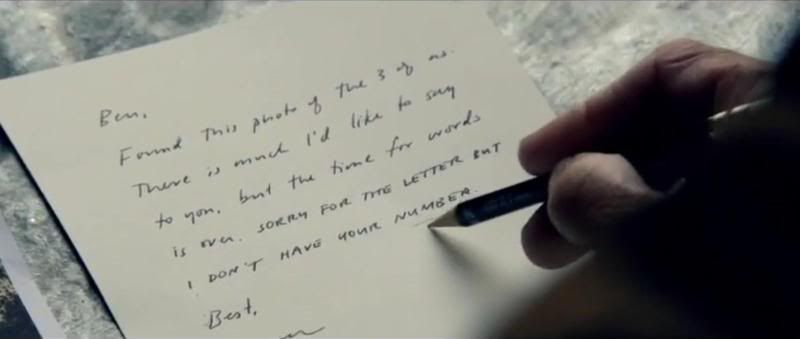 Ben,
Found this photo of the 3 of us.
There is much I'd like to say
to you, but the time for words
is over. SORRY FOR THE LETTER BUT
I DON'T HAVE YOUR NUMBER.
Best,